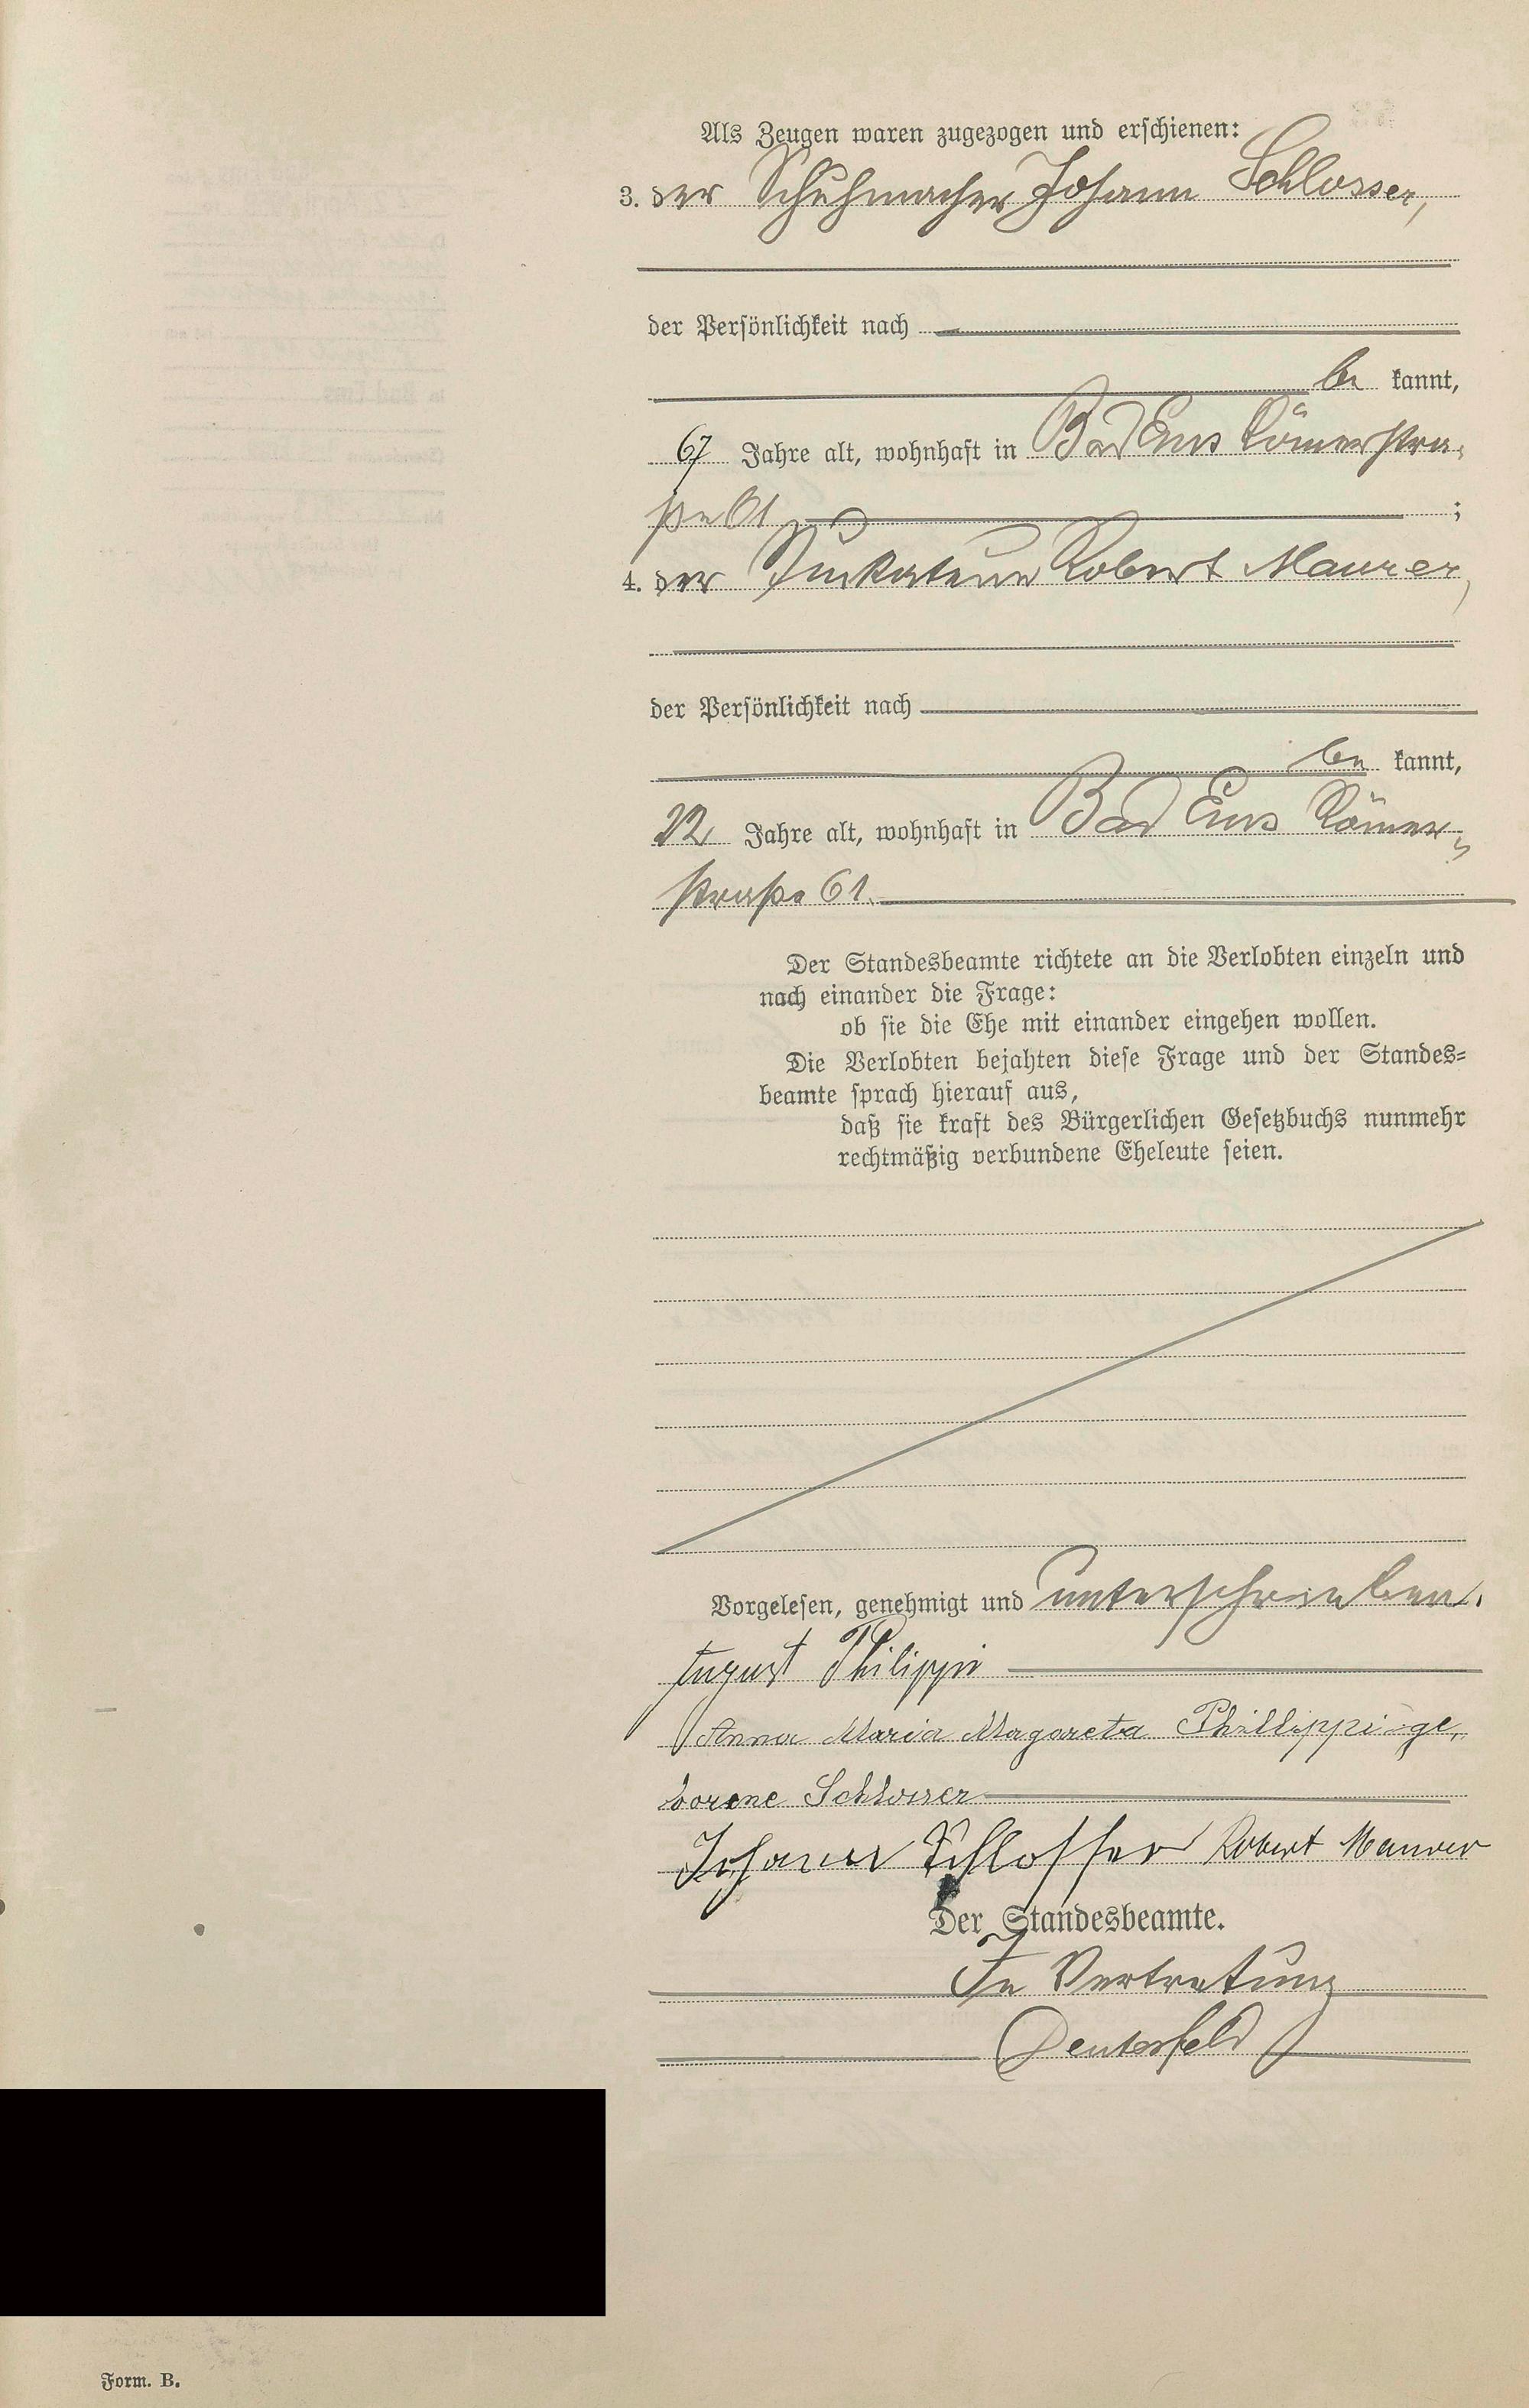 Als Zeugen waren zugezogen und erschienen:
3. der Schuhmacher Johann Schlosser,
der Persönlichkeit nach
be kannt,
67 Jahre alt, wohnhaft in Bad Ems Römerstra-
ße 61 ;
4. der Stukateur Robert Maurer,
der Persönlichkeit nach
be kannt,
22 Jahre alt, wohnhaft in Bad Ems Römer-
straße 61.
Der Standesbeamte richtete an die Verlobten einzeln und
nach einander die Frage:
ob sie die Ehe mit einander eingehen wollen.
Die Verlobten bejahten diese Frage und der Standes-
beamte sprach hierauf aus,
daß sie kraft des Bürgerlichen Gesetzbuchs nunmehr
rechtmäßig verbundene Eheleute seien.
Vorgelesen, genehmigt und unterschrieben.
August Philippi
Anna Maria Magareta Phillippi ge-
borene Schlosser
Johann Schlosser Robert Maurer
Der Standesbeamte.
In Vertretung
Form. B.